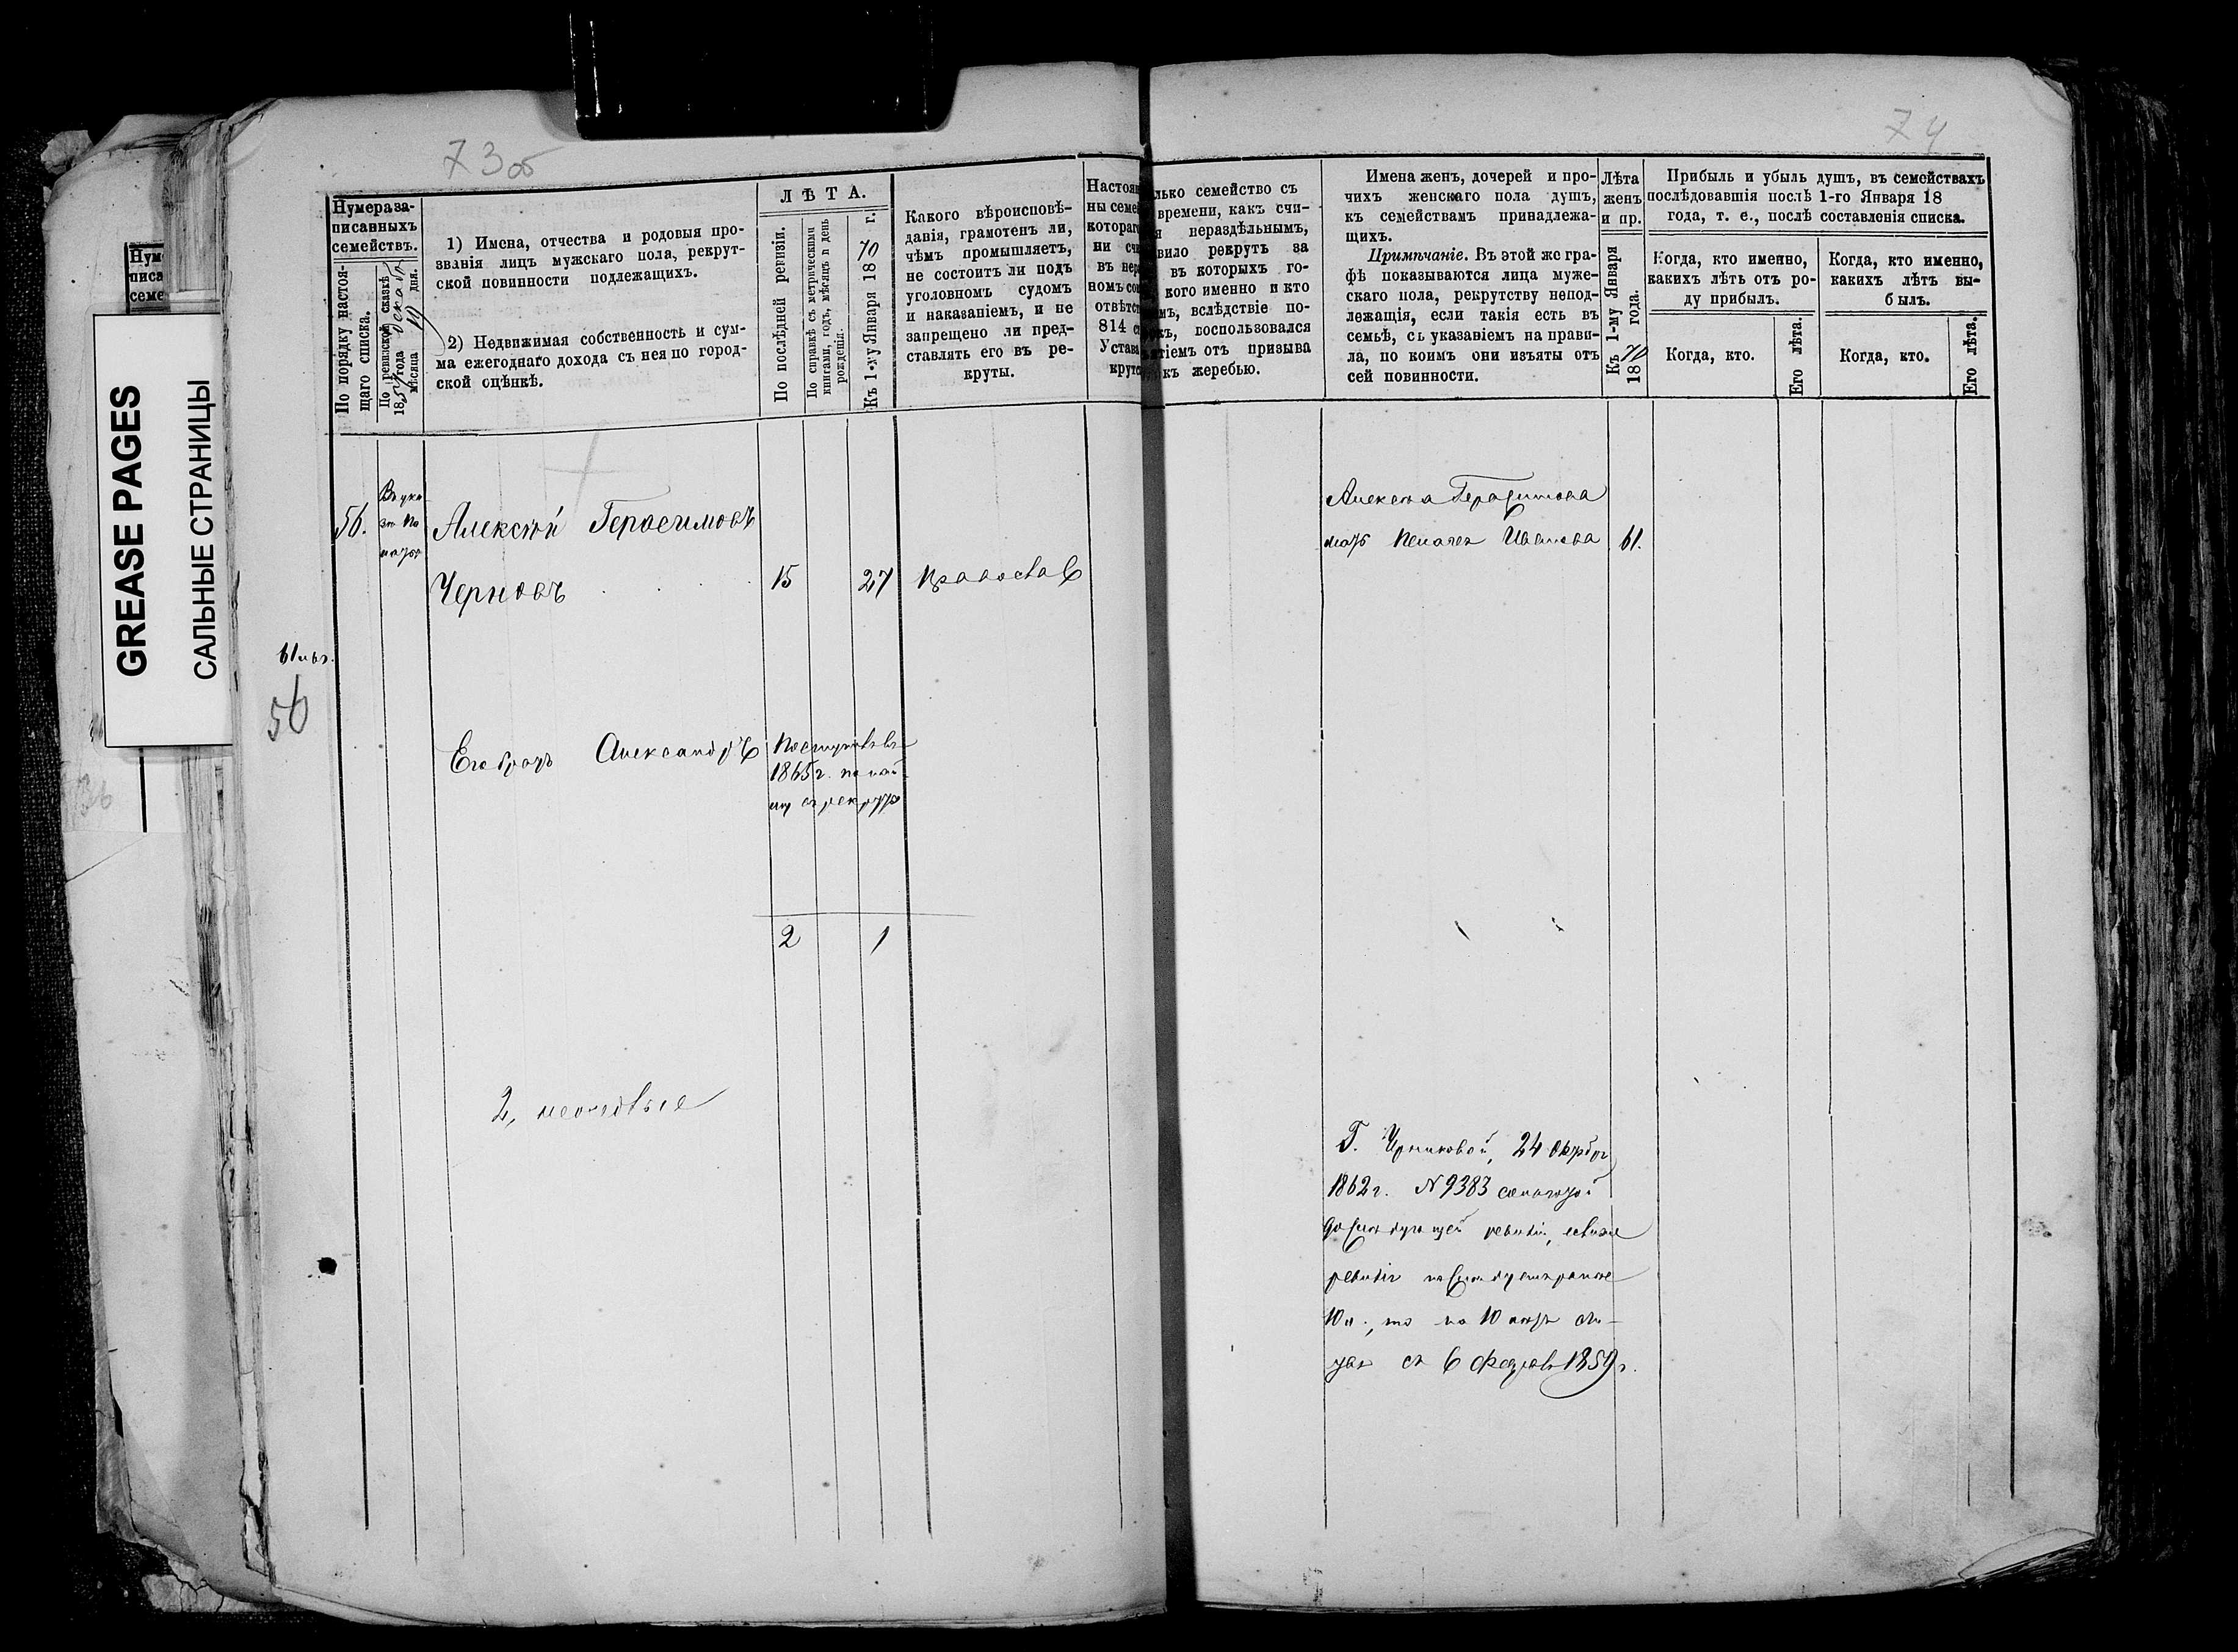 73об
74
GREASE PAGES
САЛЬНЫЕ СТРАНИЦЫ
Нумера за-
писанныхъ
семействъ.
По порядку настоя-
щаго списка.
По ревизской сказкѣ
18 года
мѣсяца дня.
1) Имена, отчества и родовыя про-
званія лицъ мужскаго пола, рекрут-
ской повинности подлежащихъ.
2) Недвижимая собственность и сум-
ма ежегоднаго дохода съ нея по город-
ской оцѣнкѣ.
ЛѢТА.
По послѣдней ревизіи.
По справкѣ съ метрическими
книгами, годъ, мѣсяцъ и день
рожденія.
Къ 1-му Января 1870 г.
Какого вѣроисповѣ-
данія, грамотенъ ли,
чѣмъ промышляетъ,
не состоитъ ли подъ
уголовномъ судомъ
и наказаніемъ, и не
запрещено ли пред-
ставлять его въ ре-
круты.
Настоя
ны семе
котораг
ни сч
въ нер
номъ со
отвѣтс
814 с
Устава
крутс
лько семейство съ
времени, какъ счи-
я нераздѣльнымъ,
вило рекрутъ за
въ которыхъ го-
кого именно и кто
мъ, вслѣдствіе по-
къ, воспользовался
тіемъ отъ призыва
къ жеребью.
Имена женъ, дочерей и про-
чихъ женскаго пола душъ,
къ семействамъ принадлежа-
щихъ.
Примѣчаніе. Въ этой же гра-
фѣ показываются лица муже-
скаго пола, рекрутству непод-
лежащія, если такія есть въ
семьѣ, съ указаніемъ на прави-
ла, по коимъ они изъяты отъ
сей повинности.
Лѣта
женъ
и пр.
Къ 1-му Января
1870 года.
Прибыль и убыль душъ, въ семействахъ
послѣдовавшія послѣ 1-го Января 18
года, т. е., послѣ составленія списка.
Когда, кто именно,
какихъ лѣтъ отъ ро-
ду прибылъ.
Когда, кто.
Его лѣта.
Когда, кто именно,
какихъ лѣтъ вы-
былъ.
Когда, кто.
Его лѣта.
56.
Алексѣй Герасимовъ
Черновъ
15 27 православ
Его братъ Александръ
1865 г.
2 1
56
2, неочедные
Алексѣя Герасимова
мать Иванова 61.
Г. 24
1862 г. № 9383
до слѣдующей ревизіи, если же
10 л., то на 10 лѣтъ
съ 6 1859 г.
Нум
писа
семе